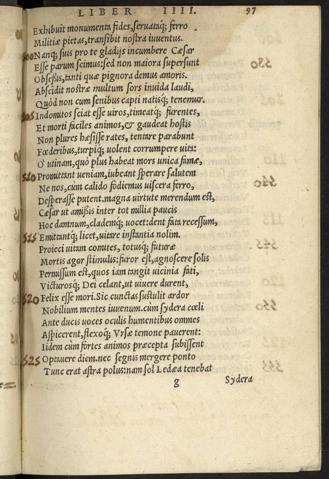 LIBER IIII. 97
Exhibuit monumenta fides, seruataq; ferro
Militiæ pietas, transibit nostra iuuentus.
500 Nanq; suis pro te gladijs incumbere Cæsar
Esse parum scimus: sed non maiora supersunt
Obsessis, tanti quæ pignora demus amoris.
Abscidit nostræ multum sors inuida laudi,
Quòd non cum senibus capti natisq; tenemur.
505 Indomitos sciat esse uiros, timeatq; furentes,
Et morti faciles animos, & gaudeat hostis
Non plures hæsisse rates, tentare parabunt
Fœderibus, turpiq; uolent corrumpere uita:
O utinam, quò plus habeat mors unica famæ,
510 Promittant ueniam, iubeant sperare salutem
Ne nos, cum calido fodiemus uiscera ferro,
Desperasse putent. magna uirtute merendum est,
Cæsar ut amissis inter tot millia paucis
Hoc damnum, clademq; uocet: dent fata recessum,
515 Emittantq; licet, uitare instantia nolim.
Proieci uitam comites, totusq; futuræ
Mortis agor stimulis: furor est, agnoscere solis
Permissum est, quos iam tangit uicinia fati,
Victurosq; Dei celant, ut uiuere durent,
520 Felix esse mori. Sic cunctas sustulit ardor
Nobilium mentes iuuenum. cùm sydera cœli
Ante ducis uoces oculis humentibus omnes
Aspicerent, flexoq; Vrsæ temone pauerent:
Iidem cùm fortes animos præcepta subissent
525 Optauere diem. nec segnis mergere ponto
Tunc erat astra polus: nam sol Ledæa tenebat
g Sydera